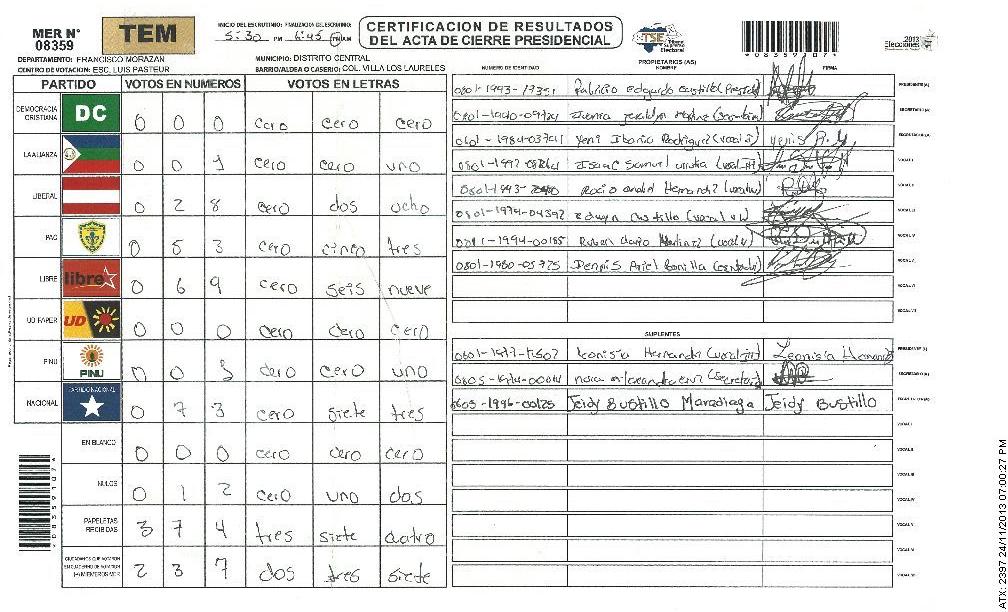 MER N°
08359
TEM
INICIO DEL ESCRUTINIO: FINALIZACION DEL ESCRUTINIO:
5:30 PM 6:45 PM
CERTIFICACION DE RESULTADOS
DEL ACTA DE CIERRE PRESIDENCIAL
TSE
Tribunal Supremo Electoral
* 0 8 3 5 9 1 0 7 *
2013
Elecciones
DEPARTAMENTO: FRANCISCO MORAZAN
MUNICIPIO: DISTRITO CENTRAL
CENTRO DE VOTACION: ESC. LUIS PASTEUR
BARRIO/ALDEA O CASERIO: COL. VILLA LOS LAURELES
PARTIDO VOTOS EN NUMEROS VOTOS EN LETRAS
DEMOCRACIA CRISTIANA DC 0 0 0 cero cero cero
LA ALIANZA 0 0 1 cero cero uno
LIBERAL 0 2 8 cero dos ocho
PAC 0 5 3 cero cinco tres
LIBRE libre 0 6 9 cero seis nueve
UD FAPER UD 0 0 0 cero cero cero
PINU PINU 0 0 1 cero cero uno
NACIONAL PARTIDO NACIONAL 0 7 3 cero siete tres
EN BLANCO 0 0 0 cero cero cero
NULOS 0 1 2 cero uno dos
PAPELETAS RECIBIDAS 3 7 4 tres siete cuatro
CIUDADANOS QUE VOTARON EN CUADERNO DE VOTACION (+) MIEMBROS MER 2 3 7 dos tres siete
* 0 8 3 5 9 1 0 7 *
PROPIETARIOS (AS)
NUMERO DE IDENTIDAD NOMBRE FIRMA
0801-1993-17351 Patricio Edgardo Castillo PRESIDENTE(A)
SECRETARIO(A)
Yeni Rodriguez
Isaac Samuel VOCAL I
0801-1993- Rocio Hernandez VOCAL II
0801-1974-04392 Edwyn Castillo VOCAL III
1994-00185 Ruben Dario Martinez VOCAL IV
0801-1980-05775 Dennis Ariel Bonilla VOCAL V
VOCAL VI
VOCAL VII
SUPLENTES
Leonisia Hernandez PRESIDENTE(A)
SECRETARIO(A)
0605-1996-00125 Jeidy Bustillo Maradiaga Jeidy Bustillo
VOCAL I
VOCAL II
VOCAL III
VOCAL IV
VOCAL V
VOCAL VI
VOCAL VII
ATX: 2397 24/11/2013 07:00:27 PM